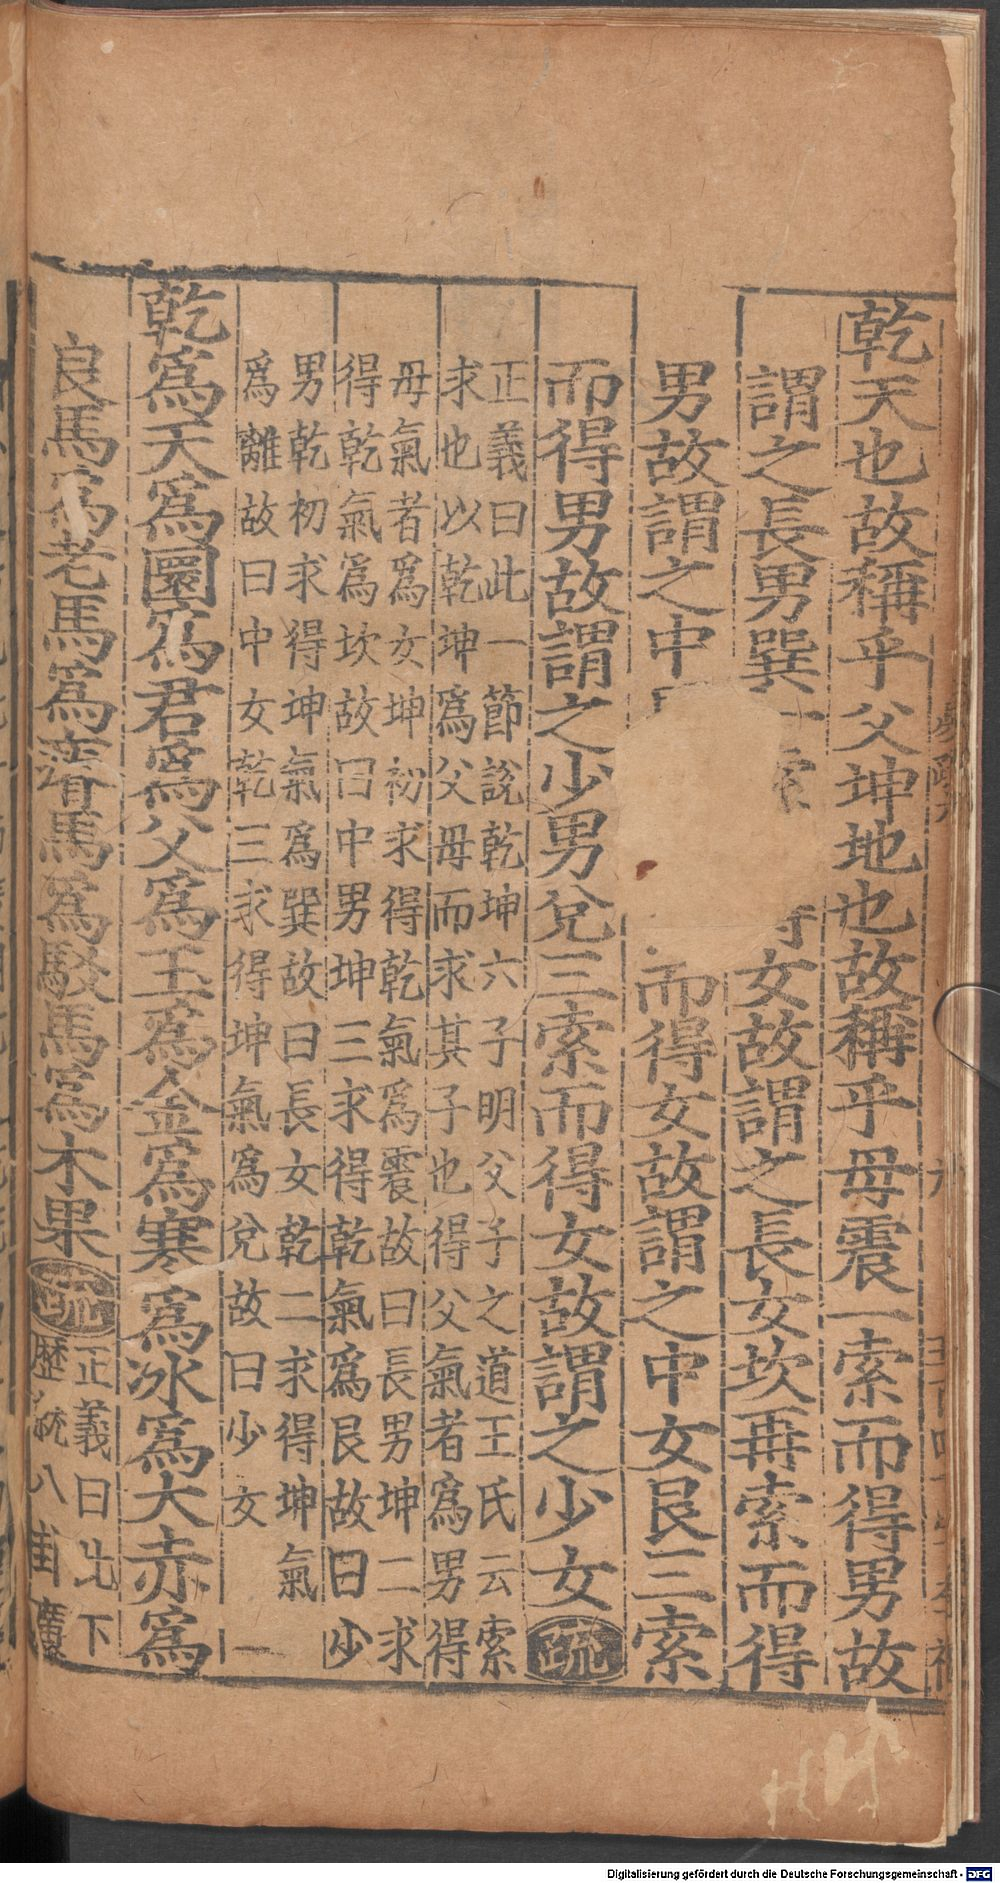 乾天也故稱乎父坤地也故稱乎母震一索而得男故
謂之長男巽一索得女故謂之長女坎再索而得
男故謂之中而得女故謂之中女艮三索
而得男故謂之少男兌三索而得女故謂之少女疏
正義曰此一節說乾坤六子明父子之道王氏云索
求也以乾坤爲父母而求其子也得父氣者爲男得
母氣者爲女坤初求得乾氣爲震故曰長男坤二求
得乾氣爲坎故曰中男坤三求得乾氣爲艮故曰少
男乾初求得坤氣爲巽故曰長女乾二求得坤氣
爲離故曰中女乾三求得坤氣爲兌故曰少女
乾爲天爲圜爲君爲父爲玉爲金爲寒爲冰爲大赤爲
良馬爲老馬爲瘠馬爲駁馬爲木果疏
正義曰此下
歷就八卦廣
Digitalisierung gefördert durch die Deutsche Forschungsgemeinschaft - DFG